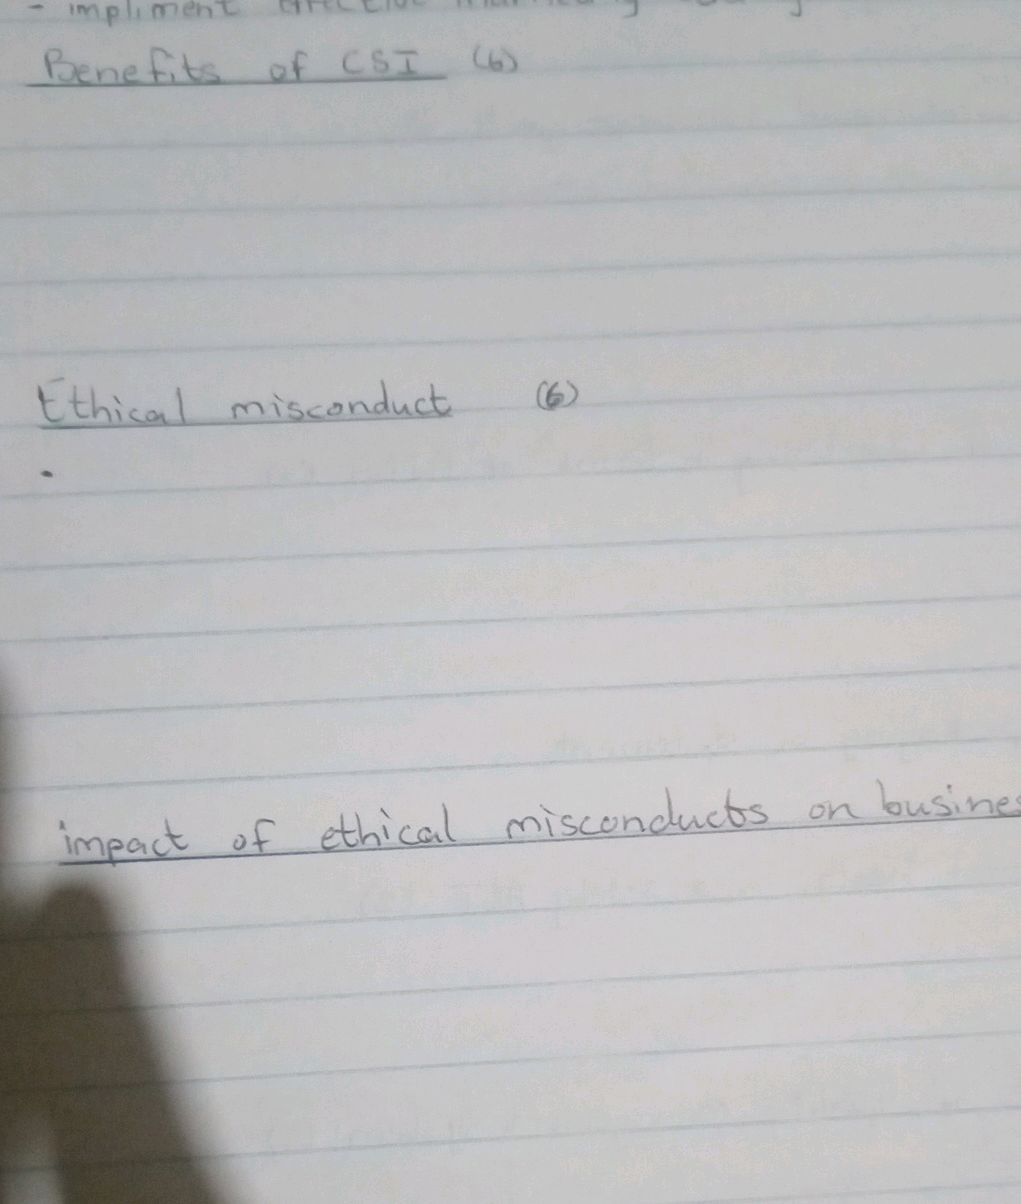 - impliment
Benefits of CSI (6)
Ethical misconduct (6)
•
impact of ethical misconducts on busines